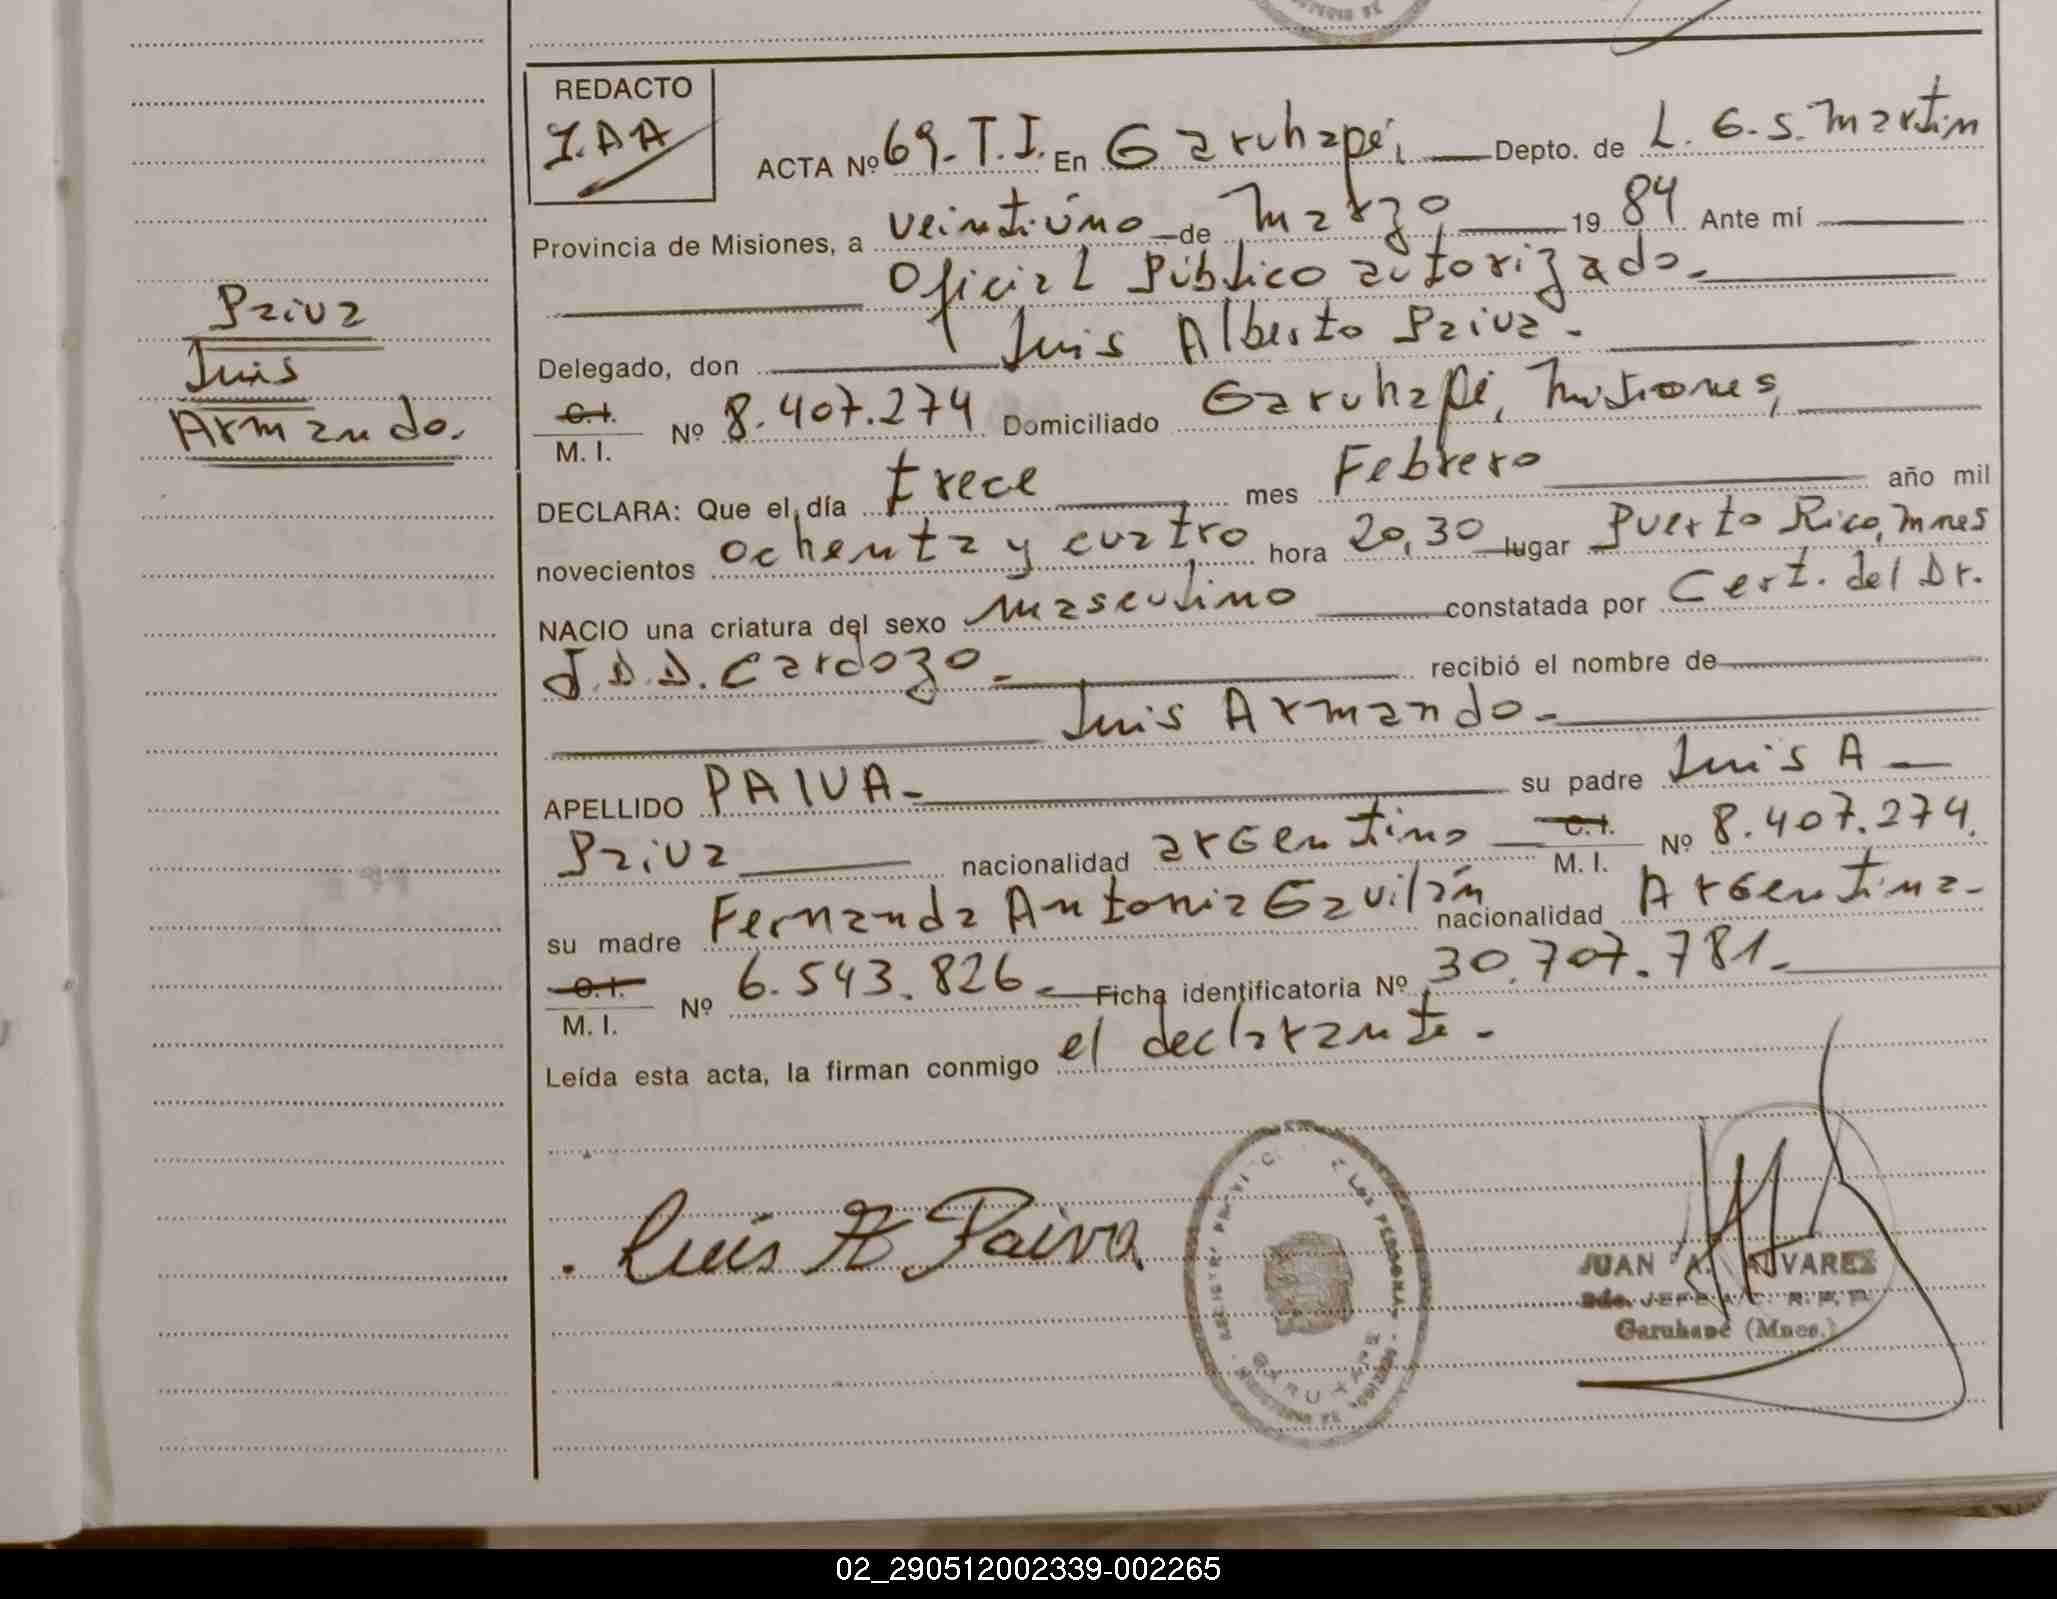 REDACTO
J.AA
ACTA Nº 69-T.I. En Garuhapé, Depto. de L. G. S. Martín
Provincia de Misiones, a veintiúno de Marzo 19 84 Ante mí
Oficial Público autorizado.
Delegado, don Luis Alberto Paiva.
C. I.
M. I. Nº 8.407.274 Domiciliado Garuhapé, Misiones,
DECLARA: Que el día trece mes Febrero año mil
novecientos ochenta y cuatro hora 20,30 lugar Puerto Rico, Mnes
NACIO una criatura del sexo masculino constatada por Cert. del Dr.
J.D.D. Cardozo recibió el nombre de
Luis Armando.
APELLIDO PAIVA su padre Luis A
Paiva nacionalidad argentino C. I. M. I. Nº 8.407.274.
su madre Fernanda Antonia Gavilán nacionalidad Argentina.
C. I.
M. I. Nº 6.543.826 Ficha identificatoria Nº 30.707.781.
Leída esta acta, la firman conmigo el declarante.
Paiva
Luis
Armando.
Luis A Paiva
LAS PERSONAS
GARUHAPE
JUAN A. ALVAREZ
Garuhapé (Mnes.)
02_290512002339-002265